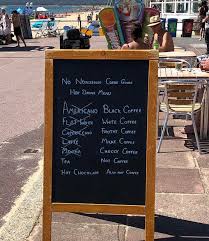 No Nonsense Good Grub
Hot Drink Menu
Americano Black Coffee
Flat White White Coffee
Cappuccino Frothy Coffee
Latte Milky Coffee
Mocha Chocky Coffee
Tea Not Coffee
Hot Chocolate Also not Coffee